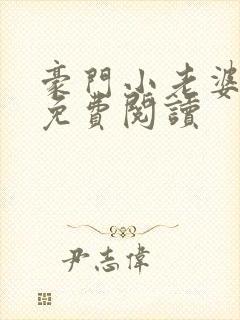 豪門小老婆
免費閱讀
尹志偉